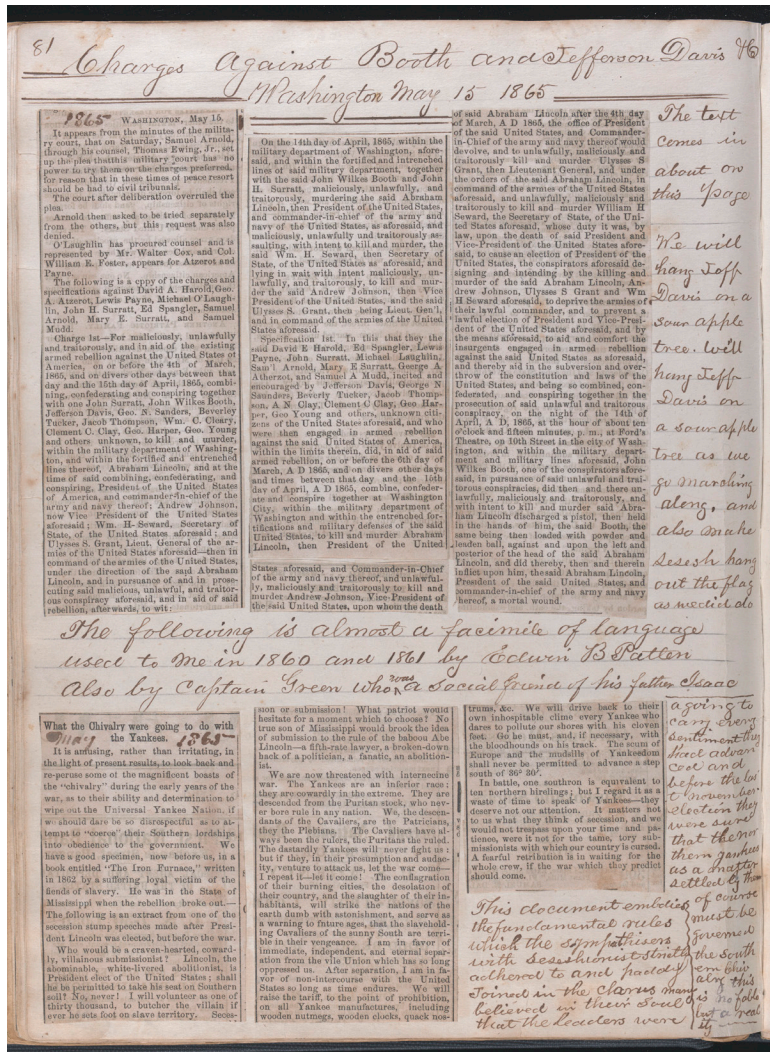 81
Charges Against Booth and Jefferson Davis 46
Washington May 15 1865
1865 WASHINGTON, May 15.
It appears from the minutes of the milita-
ry court, that on Saturday, Samuel Arnold,
through his counsel, Thomas Ewing, Jr., set
up the plea thatthis military court has no
power to try them on the charges preferred,
for reason that in these times of peace resort
should be had to civil tribunals.
The court after deliberation overruled the
plea.
Arnold then asked to be tried separately
from the others, but this request was also
denied.
O'Laughlin has procured counsel and is
represented by Mr. Walter Cox, and Col.
William E. Foster, appears for Atzerot and
Payne.
The following is a copy of the charges and
specifications against David A. Harold, Geo.
A. Atzerot, Lewis Payne, Michael O'Laugh-
lin, John H. Surratt, Ed Spangler, Samuel
Arnold, Mary E. Surratt, and Samuel
Mudd.
Charge 1st—For maliciously, unlawfully
and traitorously, and in aid of the existing
armed rebellion against the United States of
America, on or before the 4th of March,
1865, and on divers other days between that
day and the 15th day of April, 1865, combi-
ning, confederating and conspiring together
with one John Surratt, John Wilkes Booth,
Jefferson Davis, Geo. N. Sanders, Beverley
Tucker, Jacob Thompson, Wm. C. Cleary,
Clement C. Clay, Geo. Harper, Geo. Young
and others unknown, to kill and murder,
within the military department of Washing-
ton, and within the fortified and entrenched
lines thereof, Abraham Lincoln, and at the
time of said combining, confederating, and
conspiring, President of the United States
of America, and commander-in-chief of the
army and navy thereof; Andrew Johnson,
now Vice President of the United States
aforesaid; Wm. H. Seward, Secretary of
State, of the United States aforesaid; and
Ulysses S. Grant, Lieut. General of the ar-
mies of the United States aforesaid—then in
command of the armies of the United States,
under the direction of the said Abraham
Lincoln, and in pursuance of and in prose-
cuting said malicious, unlawful, and traitor-
ous conspiracy aforesaid, and in aid of said
rebellion, afterwards, to wit:
On the 14th day of April, 1865, within the
military department of Washington, afore-
said, and within the fortified and intrenched
lines of said military department, together
with the said John Wilkes Booth and John
H. Surratt, maliciously, unlawfully, and
traitorously, murdering the said Abraham
Lincoln, then President of the United States,
and commander-in-chief of the army and
navy of the United States, as aforesaid, and
maliciously, unlawfully and traitorously as-
saulting, with intent to kill and murder, the
said Wm. H. Seward, then Secretary of
State, of the United States as aforesaid, and
lying in wait with intent maliciously, un-
lawfully, and traitorously, to kill and mur-
der the said Andrew Johnson, then Vice
President of the United States, and the said
Ulysses S. Grant, then being Lieut. Gen'l,
and in command of the armies of the United
States aforesaid.
Specification 1st. In this that they the
said David E Harold, Ed Spangler, Lewis
Payne, John Surratt, Michael Laughlin,
Sam'l Arnold, Mary E Surratt, George A
Atherzot, and Samuel A Mudd, incited and
encouraged by Jefferson Davis, George N
Saunders, Beverly Tucker, Jacob Thomp-
son, A N Clay, Clement C Clay, Geo Har-
per, Geo Young and others, unknown citi-
zens of the United States aforesaid, and who
were then engaged in armed rebellion
against the said United States of America,
within the limits therein, did, in aid of said
armed rebellion, on or before the 6th day of
March, A D 1865, and on divers other days
and times between that day and the 15th
day of April, A D 1865, combine, confeder-
ate and conspire together at Washington
City, within the military department of
Washington and within the entrenched for-
tifications and military defenses of the said
United States, to kill and murder Abraham
Lincoln, then President of the United
States aforesaid, and Commander-in-Chief
of the army and navy thereof, and unlawful-
ly, maliciously and traitorously to kill and
murder Andrew Johnson, Vice-President of
the said United States, upon whom the death
of said Abraham Lincoln after the 4th day
of March, A D 1865, the office of President
of the said United States, and Commander-
in-Chief of the army and navy thereof would
devolve, and to unlawfully, maliciously and
traitorously kill and murder Ulysses S
Grant, then Lieutenant General, and under
the orders of the said Abraham Lincoln, in
command of the armies of the United States
aforesaid, and unlawfully, maliciously and
traitorously to kill and murder William H
Seward, the Secretary of State, of the Uni-
ted States aforesaid, whose duty it was, by
law, upon the death of said President and
Vice-President of the United States afore-
said, to cause an election of President of the
United States, the conspirators aforesaid de-
signing and intending by the killing and
murder of the said Abraham Lincoln, An-
drew Johnson, Ulysses S Grant and Wm
H Seward aforesaid, to deprive the armies of
their lawful commander, and to prevent a
lawful election of President and Vice-Presi-
dent of the United States aforesaid, and by
the means aforesaid, to aid and comfort the
insurgents engaged in armed rebellion
against the said United States as aforesaid,
and thereby aid in the subversion and over-
throw of the constitution and laws of the
United States, and being so combined, con-
federated, and conspiring together in the
prosecution of said unlawful and traitorous
conspiracy, on the night of the 14th of
April, A, D, 1865, at the hour of about ten
o'clock and fifteen minutes, p. m., at Ford's
Theatre, on 10th Street in the city of Wash-
ington, and within the military depart-
ment and military lines aforesaid, John
Wilkes Booth, one of the conspirators afore-
said, in pursuance of said unlawful and trai-
torous conspiracies, did then and there un-
lawfully, maliciously and traitorously, and
with intent to kill and murder said Abra-
ham Lincoln discharged a pistol, then held
in the hands of him, the said Booth, the
same being then loaded with powder and
leaden ball, against and upon the left and
posterior of the head of the said Abraham
Lincoln, and did thereby, then and therein
inflict upon him, the said Abraham Lincoln,
President of the said United States, and
commander-in-chief of the army and navy
hereof, a mortal wound.
The text
comes in
about on
this page
We will
hang Jeff
Davis on a
sour apple
tree. will
hang Jeff
Davis on
a sour apple
tree as we
go marching
along, and
also make
Sesesh hang
out the flag
as we did do
The following is almost a facimile of language
used to me in 1860 and 1861 by Edwin B Patten
Also by Captain Green who was a social friend of his father Isaac
What the Chivalry were going to do with
the Yankees.
May 1865
It is amusing, rather than irritating, in
the light of present results, to look back and
re-peruse some of the magnificent boasts of
the "chivalry" during the early years of the
war, as to their ability and determination to
wipe out the Universal Yankee Nation, if
we should dare be so disrespectful as to at-
tempt to "coerce" their Southern lordships
into obedience to the government. We
have a good specimen, now before us, in a
book entitled "The Iron Furnace," written
in 1862 by a suffering loyal victim of the
fiends of slavery. He was in the State of
Mississippi when the rebellion broke out.—
The following is an extract from one of the
secession stump speeches made after Presi-
dent Lincoln was elected, but before the war.
Who would be a craven-hearted, coward-
ly, villainous submissionist? Lincoln, the
abominable, white-livered abolitionist, is
President elect of the United States; shall
he be permitted to take his seat on Southern
soil? No, never! I will volunteer as one of
thirty thousand, to butcher the villain if
ever he sets foot on slave territory. Seces-
sion or submission! What patriot would
hesitate for a moment which to choose? No
true son of Mississippi would brook the idea
of submission to the rule of the baboon Abe
Lincoln—a fifth-rate lawyer, a broken-down
hack of a politician, a fanatic, an abolition-
ist.
We are now threatened with internecine
war. The Yankees are an inferior race;
they are cowardly in the extreme. They are
descended from the Puritan stock, who nev-
er bore rule in any nation. We, the descen-
dants of the Cavaliers, are the Patricians,
they the Plebians. The Cavaliers have al-
ways been the rulers, the Puritans the ruled.
The dastardly Yankees will never fight us;
but if they, in their presumption and audac-
ity, venture to attack us, let the war come—
I repeat it—let it come! The conflagration
of their burning cities, the desolation of
their country, and the slaughter of their in-
habitants, will strike the nations of the
earth dumb with astonishment, and serve as
a warning to future ages, that the slavehold-
ing Cavaliers of the sunny South are terri-
ble in their vengeance. I am in favor of
immediate, independent, and eternal separ-
ation from the vile Union which has so long
oppressed us. After separation, I am in fa-
vor of non-intercourse with the United
States so long as time endures. We will
raise the tariff, to the point of prohibition,
on all Yankee manufactures, including
wooden nutmegs, wooden clocks, quack nos-
trums, &c. We will drive back to their
own inhospitable clime every Yankee who
dares to pollute our shores with his cloven
feet. Go he must, and, if necessary, with
the bloodhounds on his track. The scum of
Europe and the mudsills of Yankeedom
shall never be permitted to advance a step
south of 36° 30'.
In battle, one southron is equivalent to
ten northern hirelings; but I regard it as a
waste of time to speak of Yankees—they
deserve not our attention. It matters not
to us what they think of secession, and we
would not trespass upon your time and pa-
tience, were it not for the tame, tory sub-
missionists with which our country is cursed.
A fearful retribution is in waiting for the
whole crew, if the war which they predict
should come!
This document embodies
the fundamental rules
which the sympathisers
with Seseshionist strictly
adhered to and
Joined in the Chorus many
believed in their Soul
that the Leaders were
a going to
carry every
sentiment they
had advan
ced and
before the last
November
Election they
were sure
that the nor
thern yankees
as a matter
settled by them
of course
must be
governed
the South
ern Chiv
alry this
is no fable
but a real
ity